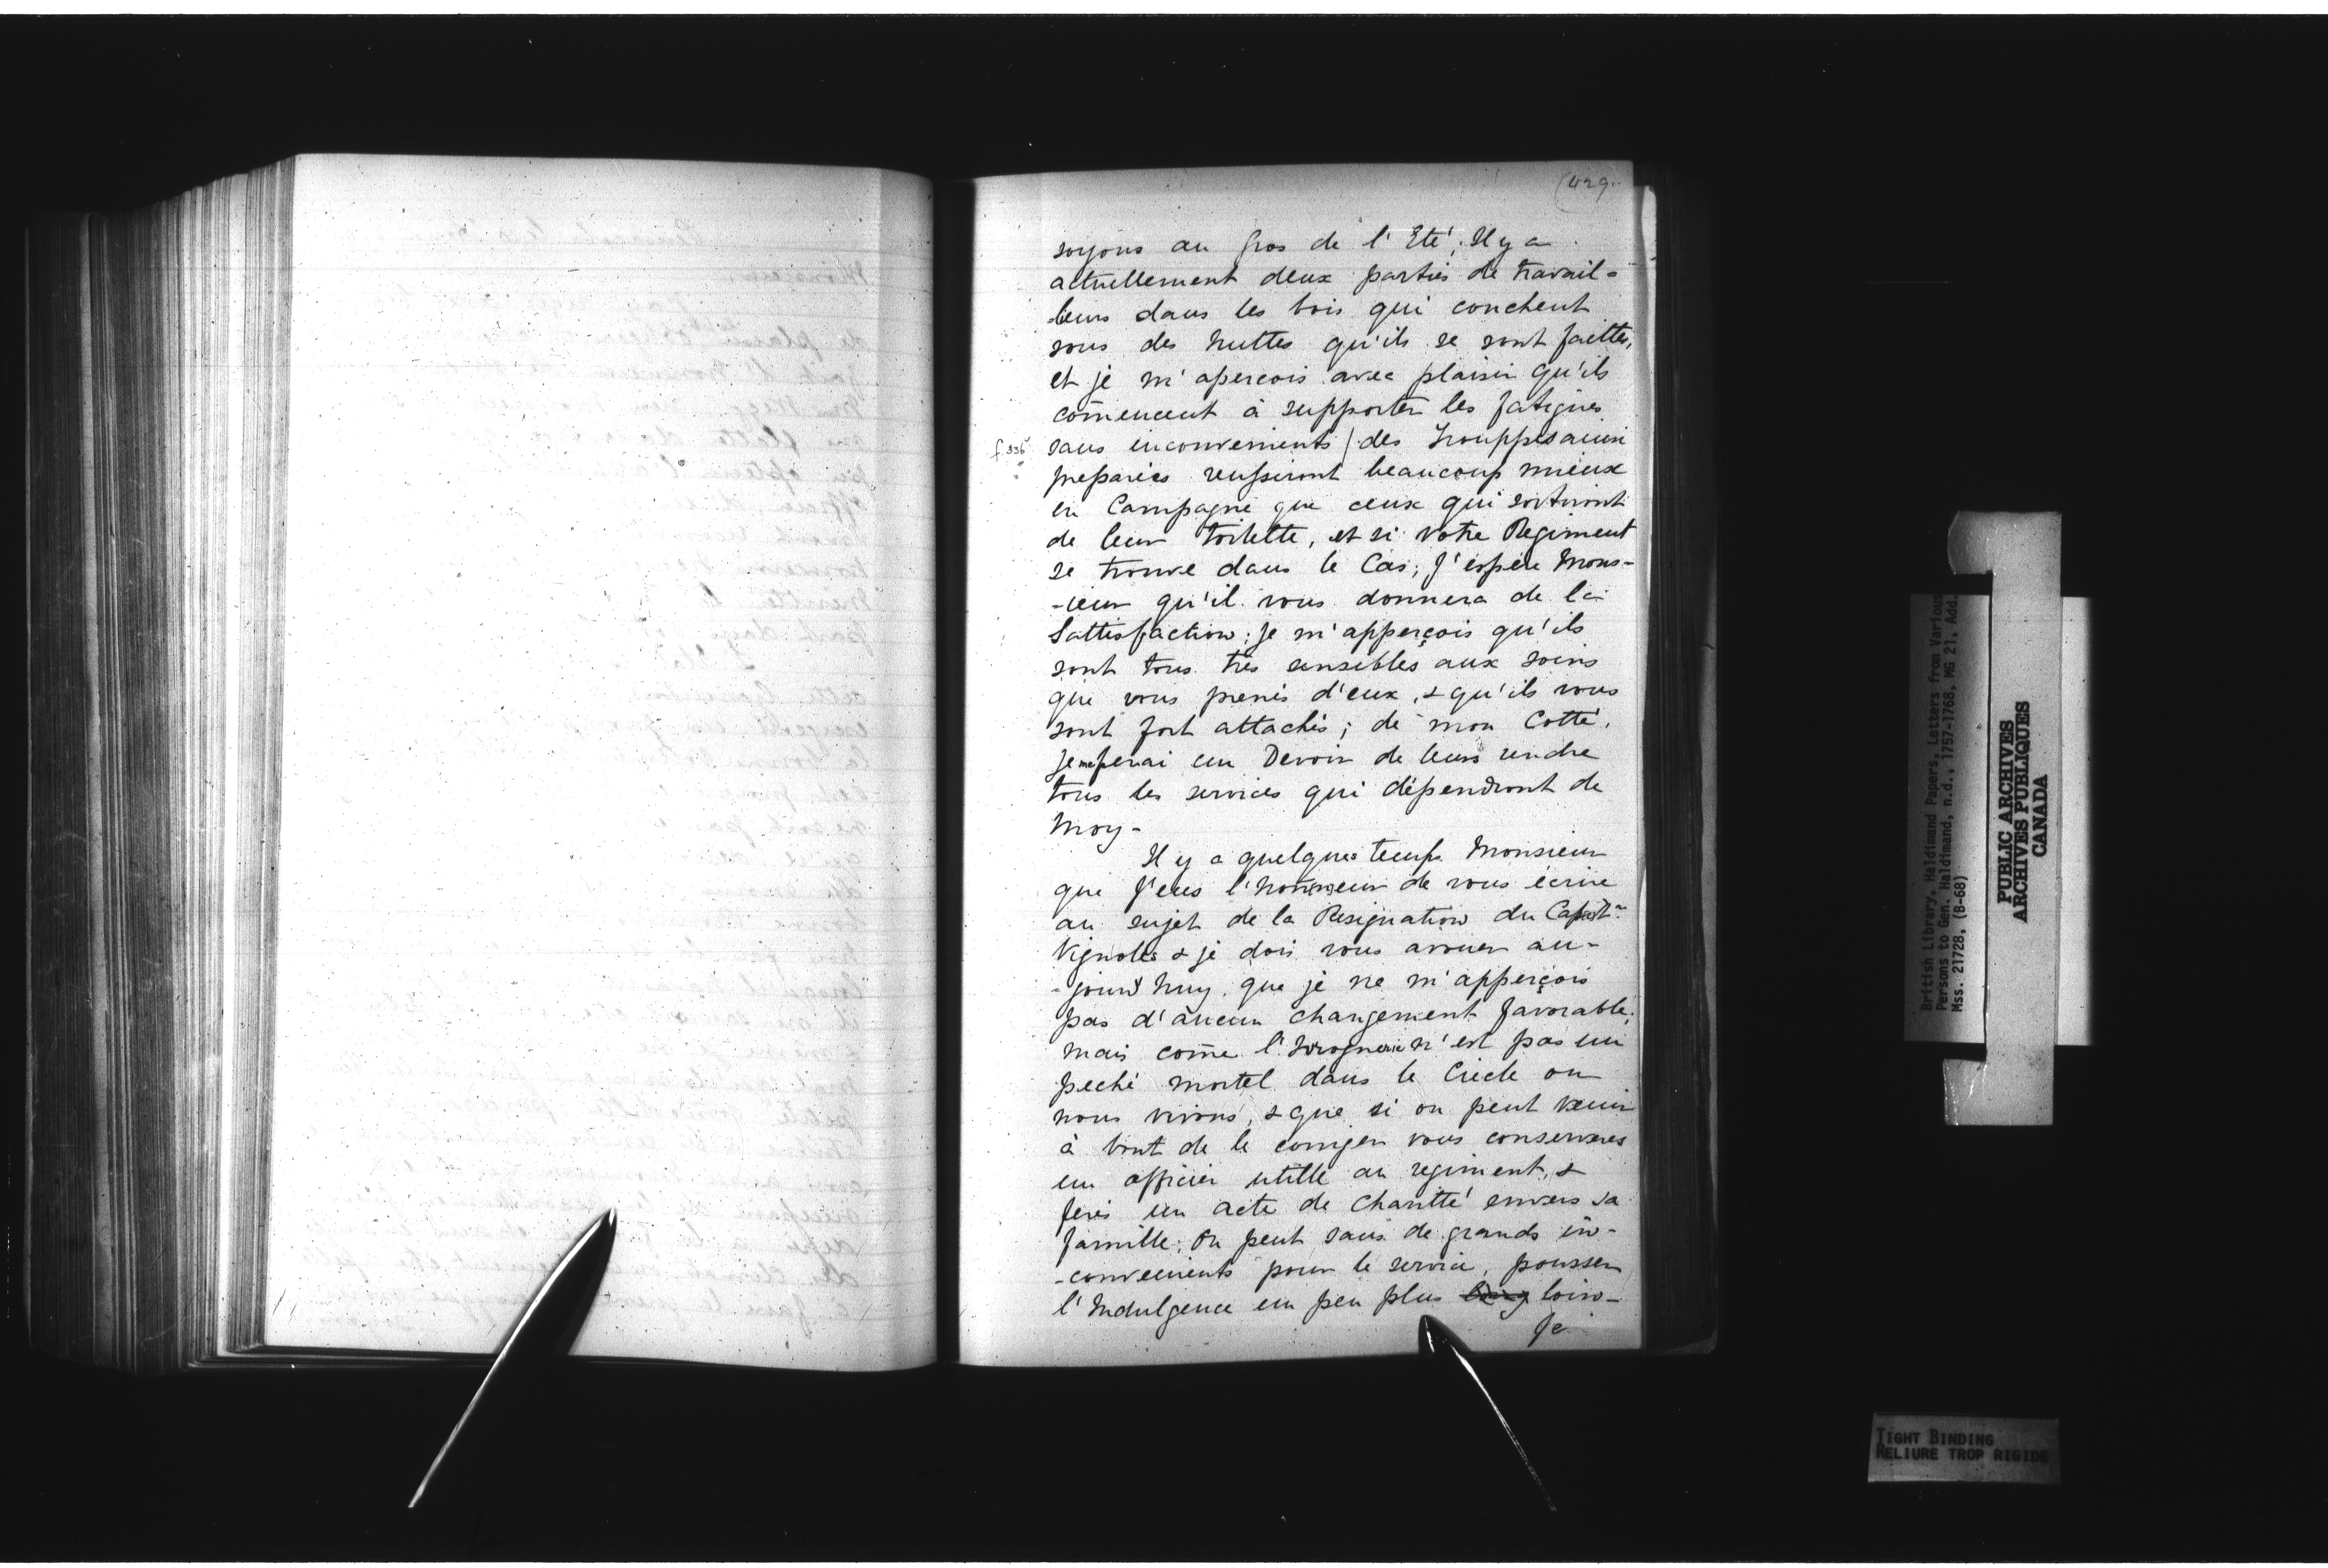 (429.
soyons au Gros de l'Eté; Il y a
actuellement deux parties de travail=
-leurs dans les bois qui couchent
sous des huttes qu'ils se sont faittes,
et je m'apercois avec plaisir qu'ils
com̃encent à supporter les fatigues
f. 336 sans inconvenients / des Trouppes ainsi
preparées reussiront beaucoup mieux
en Campagne que ceux qui sortiront
de leur toilette, et si votre Regiment
se trouve dans le Cas; J'espére Mons-
-ieur qu'il vous donnera de la
Sattisfaction; je m'apperçois qu'ils
sont tous très sensibles aux soins
que vous prenés d'eux, & qu'ils vous
sont fort attachés; de mon Cotté,
Je me ferai un Devoir de leurs rendre
tous les services qui dépendront de
Moy-
Il y a quelques temps Monsieur
que J'eus l'honneur de vous écrire
au sujet de la Resignation du Capt.
Vignoles & je dois vous avouer au-
-jourd'huy, que je ne m'apperçois
pas d'aucun changement favorable;
mais com̃e l'Ivrognerie n'est pas un
peché mortel dans le Ciecle ou
nous vivons, & que si on peut venir
à bout de le corriger vous conserveres
un officier utille au regiment, &
ferés un acte de Charitté envers sa
famille; On peut sans de grands in-
-convenients pour le service, pousser
l'Indulgence un peu plus loin-
Je
British Library, Haldimand Papers, Letters from Various
Persons to Gen. Haldimand, n.d., 1757-1768, MG 21, Add.
Mss. 21728, (B-68)
PUBLIC ARCHIVES
ARCHIVES PUBLIQUES
CANADA
TIGHT BINDING
RELIURE TROP RIGIDE